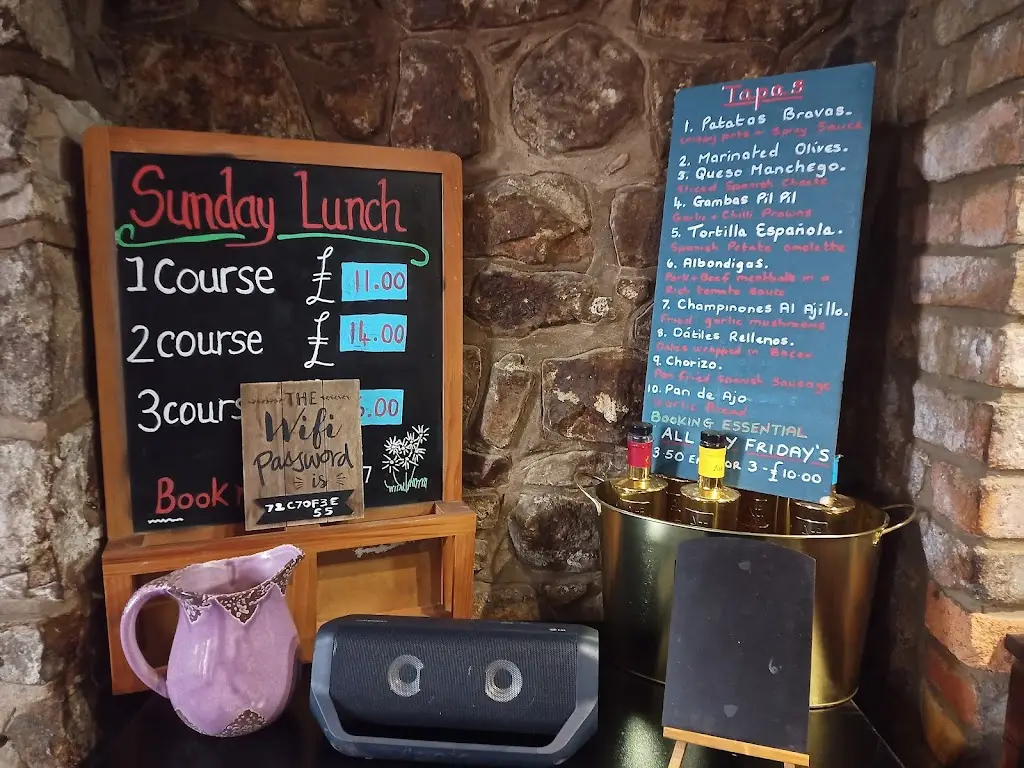 Sunday Lunch
1 Course £ 11.00
2 course £ 14.00
3 cours .00
Book
7
THE
Wifi
password
is
72C70F3E
55
Tapas
1. Patatas Bravas.
Spicy Sauce
2. Marinated Olives.
3. Queso Manchego.
Sliced Spanish Cheese
4. Gambas Pil Pil
Garlic + Chilli Prawns
5. Tortilla Española.
Spanish Potato omelette
6. Albondigas.
Pork + Beef meatballs in a
Rich tomato Sauce
7. Champinones Al Ajillo.
Fried garlic mushrooms
8. Dátiles Rellenos.
Dates wrapped in Bacon
9. Chorizo.
Pan fried Spanish Sausage
10. Pan de Ajo
Garlic Bread
BOOKING ESSENTIAL
ALL FRIDAY'S
3.50 OR 3 - £10.00